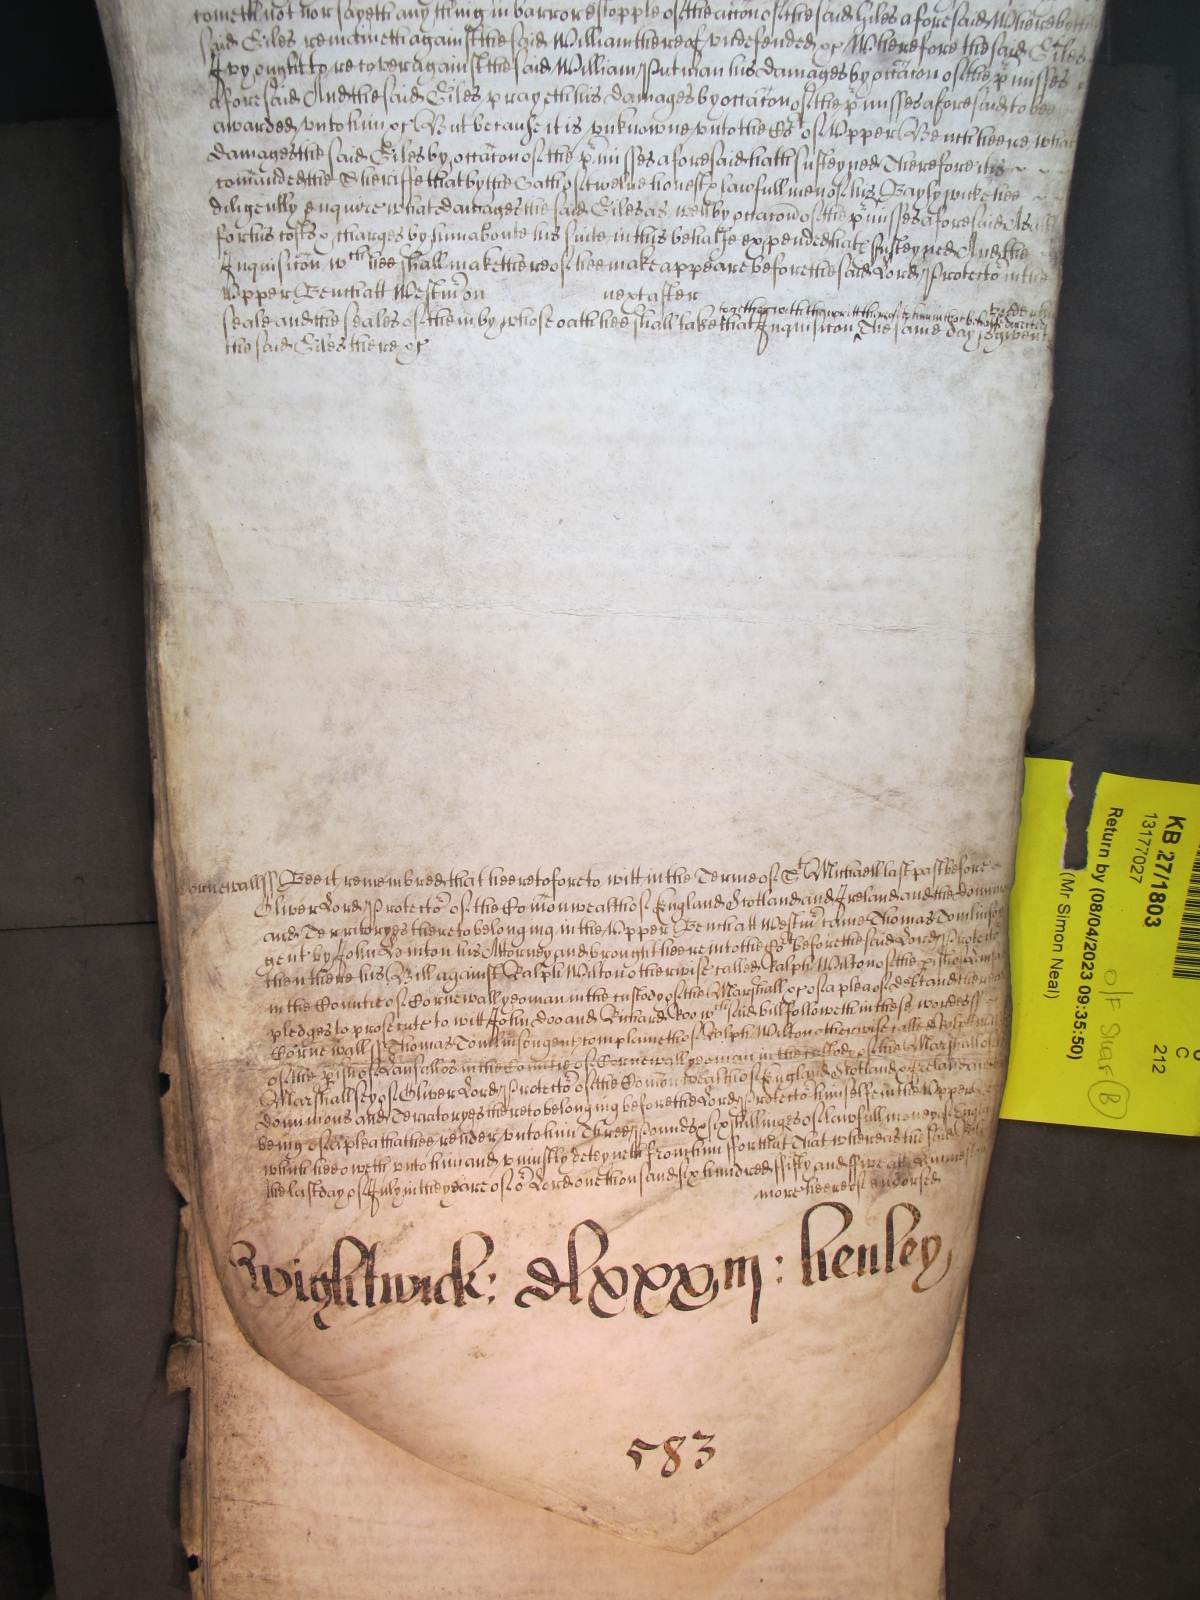 cometh not nor sayeth any thing in barr or estopple of the accon of the said Giles aforesaid Whereby the
said Giles remaineth against the said William thereof undefended &c Wherefore the said Giles
ought to recover against the said William Putman his damages by occacon of the p'misses
aforesaid And the said Giles prayeth his damages by occacon of the p'misses aforesaid to bee
awarded unto him &c But because it is unknowne unto the Co't of Upper Bench heere what
damages the said Giles by occacon of the p'misses aforesaid hath susteyned Therefore it is
comanded the Sheriffe that by the Oath of twelve honest & lawfull men of his Baylywicke hee
diligently enquire what damages the said Giles as well by occacon of the p'misses aforesaid As
for his costs & charges by him about his suite in this behalfe expended hath susteyned And the
Inquisicon w'ch hee shall make thereof hee make appeare before the said Lord Protecto'r in the
Upper Bench att Westm' on next after
together with the writt thereof to him in that behalfe directed
seale and the seales of them by whose oath hee shall take that Inquisicon The same day is given to
the said Giles there &c
Cornewall ss Bee it remembred that heeretofore to witt in the Terme of St Michaell last past before
Oliver Lord Protecto'r of the Comonwealth of England Scotland and Ireland and the dominions
and Territoryes thereto belonging in the Upper Bench att Westm' came Thomas Tomlinson
gent by John Lemton his Attorney and brought heere into the Co't before the said Lord Protecto'r
then there his Bill against Ralph Wilton otherwise called Ralph Wilton of the p'ish of
in the Countie of Cornewall yeoman in the custody of the Marshall &c of a plea of debt and there are
pledges to prosecute to witt John Doo and Richard Roo w'ch said bill followeth in these wordes ss
Cornewall ss Thomas Tomlinson gent complaineth of Ralph Wilton otherwise called Ralph
of the p'ish of Lansallos in the Countie of Cornewall yeoman in the custody of the Marshall of
Marshallsey of Oliver Lord Protecto'r of the Comonwealth of England Scotland & Ireland and the
dominions and Territoryes thereto belonging before the Lord Protecto'r himselfe in the Upper
being of a plea that hee render unto him Three Pounds & six shillinges of lawfull money of England
which hee oweth unto him and uniustly deteyneth from him ffor that That whereas the said
the last day of July in the yeare of o'r Lord one thousand six hundred ffifty and ffive att
more heereof endorsed
Wightwick: dlxxxiij: henley
583
KB 27/1803
13177027
Return by (08/04/2023 09:35:50)
(Mr Simon Neal)
C
212
O/F Shelf B